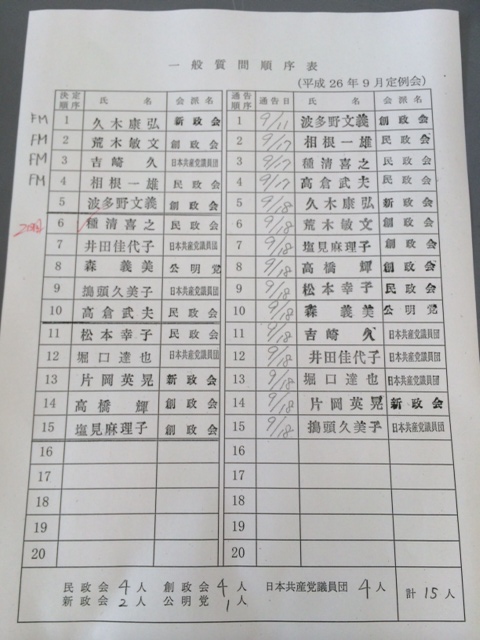 一般質問順序表
(平成26年9月定例会)
決定順序 氏名 会派名 通告順序 通告日 氏名 会派名
FM 1 久木康弘 新政会 1 9/11 波多野文義 創政会
FM 2 荒木敏文 創政会 2 9/17 相根一雄 民政会
FM 3 吉崎久 日本共産党議員団 3 9/17 種清喜之 民政会
FM 4 相根一雄 民政会 4 9/17 高倉武夫 民政会
5 波多野文義 創政会 5 9/18 久木康弘 新政会
6 種清喜之 民政会 6 9/18 荒木敏文 創政会
7 井田佳代子 日本共産党議員団 7 9/18 塩見麻理子 創政会
8 森義美 公明党 8 9/18 高橋輝 創政会
9 搗頭久美子 日本共産党議員団 9 9/18 松本幸子 民政会
10 高倉武夫 民政会 10 9/18 森義美 公明党
11 松本幸子 民政会 11 9/18 吉崎久 日本共産党議員団
12 堀口達也 日本共産党議員団 12 9/18 井田佳代子 日本共産党議員団
13 片岡英晃 新政会 13 9/18 堀口達也 日本共産党議員団
14 高橋輝 創政会 14 9/18 片岡英晃 新政会
15 塩見麻理子 創政会 15 9/18 搗頭久美子 日本共産党議員団
16 16
17 17
18 18
19 19
20 20
民政会 4人 創政会 4人 日本共産党議員団 4人 計15人
新政会 2人 公明党 1人